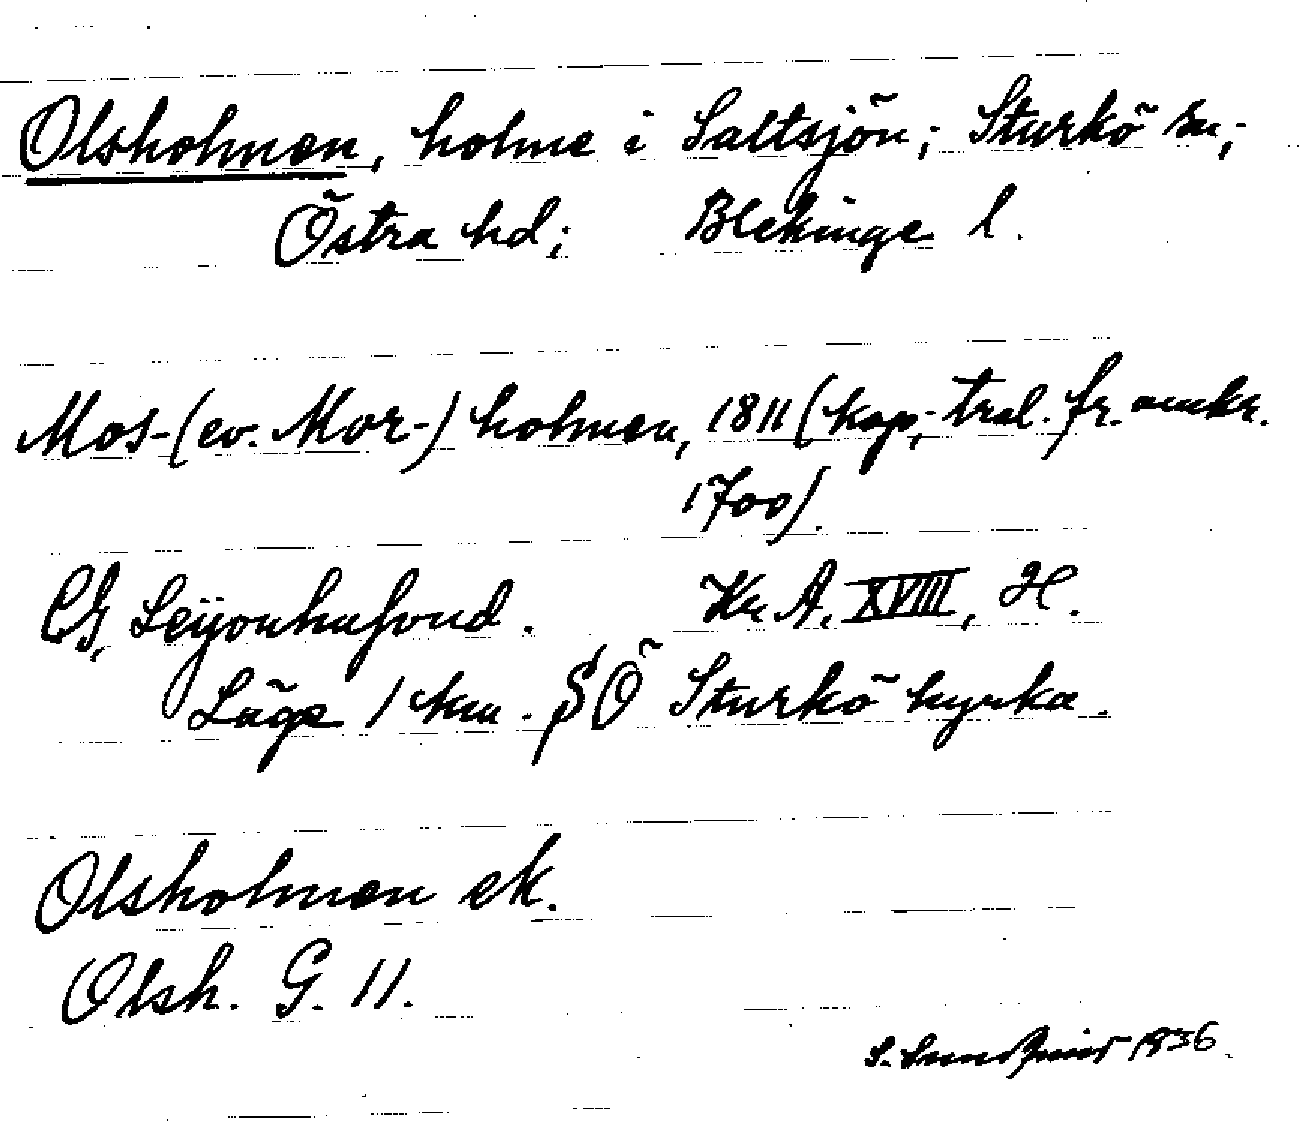 Olsholmen, holme i Saltsjön; Sturkö sn,
Östra hd; Blekinge l.
Mos-(ev. Mor-) holmen, 1811 (kop, tral. fr. omkr.
1700).
CG, Leijonhufvud. Kr. A. XVIII, H.
Läge 1 km. SÖ Sturkö kyrka.
Olsholmen ek.
Olsh. G. 11.
S. 1936